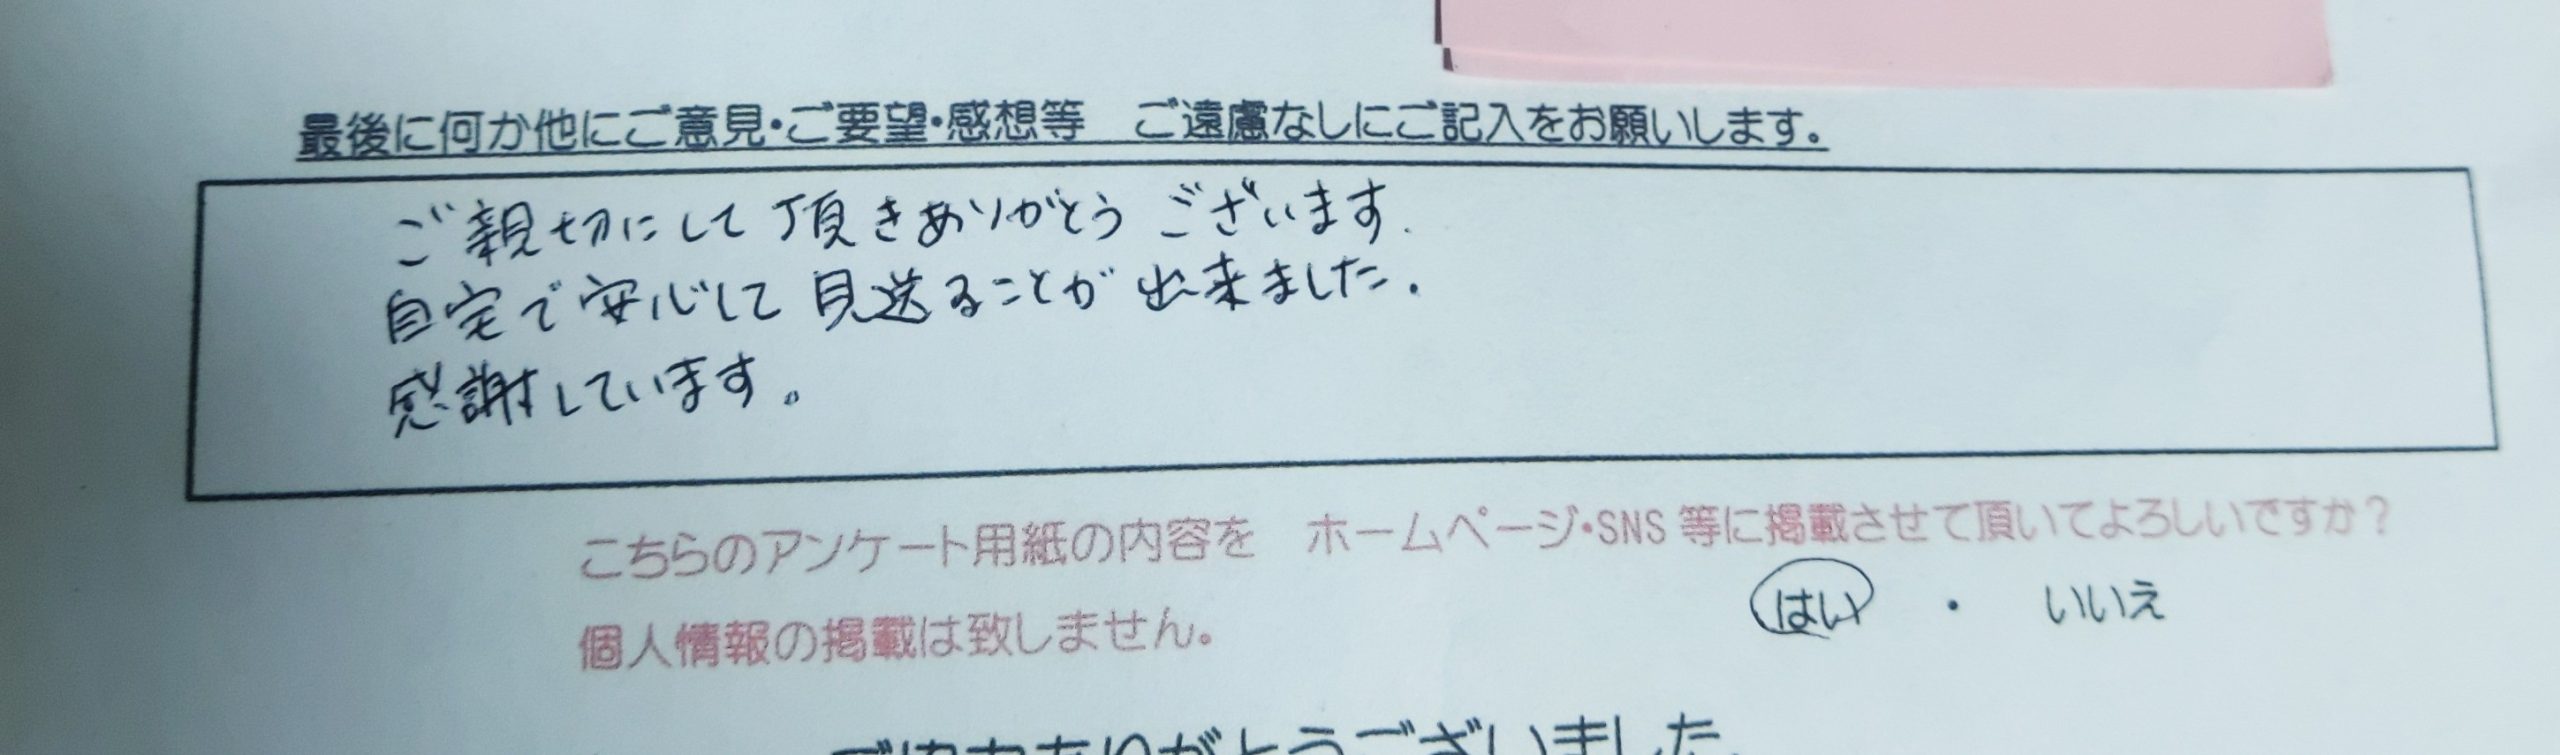 最後に何か他にご意見・ご要望・感想等　ご遠慮なしにご記入をお願いします。
ご親切にして頂きありがとうございます.
自宅で安心して見送ることが出来ました.
感謝しています。
こちらのアンケート用紙の内容を　ホームページ・SNS 等に掲載させて頂いてよろしいですか？
はい　・　いいえ
個人情報の掲載は致しません。
ありがとうございました